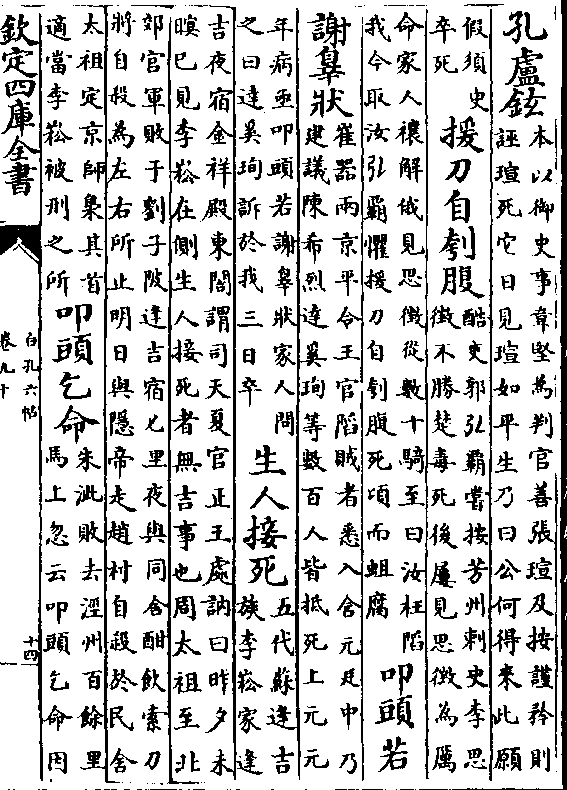 孔盧鉉
本以御史事韋堅為判官善張瑄及按護矜則
誣瑄死它日見瑄如平生乃曰公何得來此願
假須史
卒死
援刀自刳腹
酷吏郭弘霸嘗按芳州刺史李思
徵不勝楚毒死後屢見思徵為厲
命家人禳解俄見思徵從數十騎至曰汝枉陷
我今取汝弘霸懼援刀自刳腹死頃而蛆腐
叩頭若
謝辠狀
崔器兩京平令王官陷賊者悉入含元廷中乃
建議陳希烈達奚珣等數百人皆抵死上元元
年病亟叩頭若謝辠狀家人問
之曰達奚珣訴於我三日卒
生人接死
五代蘇逢吉
族李崧家逢
吉夜宿金祥殿東閤謂司天夏官正王處訥曰昨夕未
暝巳見李崧在側生人接死者無吉事也周太祖至北
郊官軍敗于劉子陂逢吉宿七里夜與同舍酣飲索刀
將自殺為左右所止明日與隱帝走趙村自殺於民舍
太祖定京師梟其首
適當李崧被刑之所
叩頭乞命
朱泚敗去涇州百餘里
馬上忽云叩頭乞命因
欽定四庫全書
白孔六帖
卷九十
十四